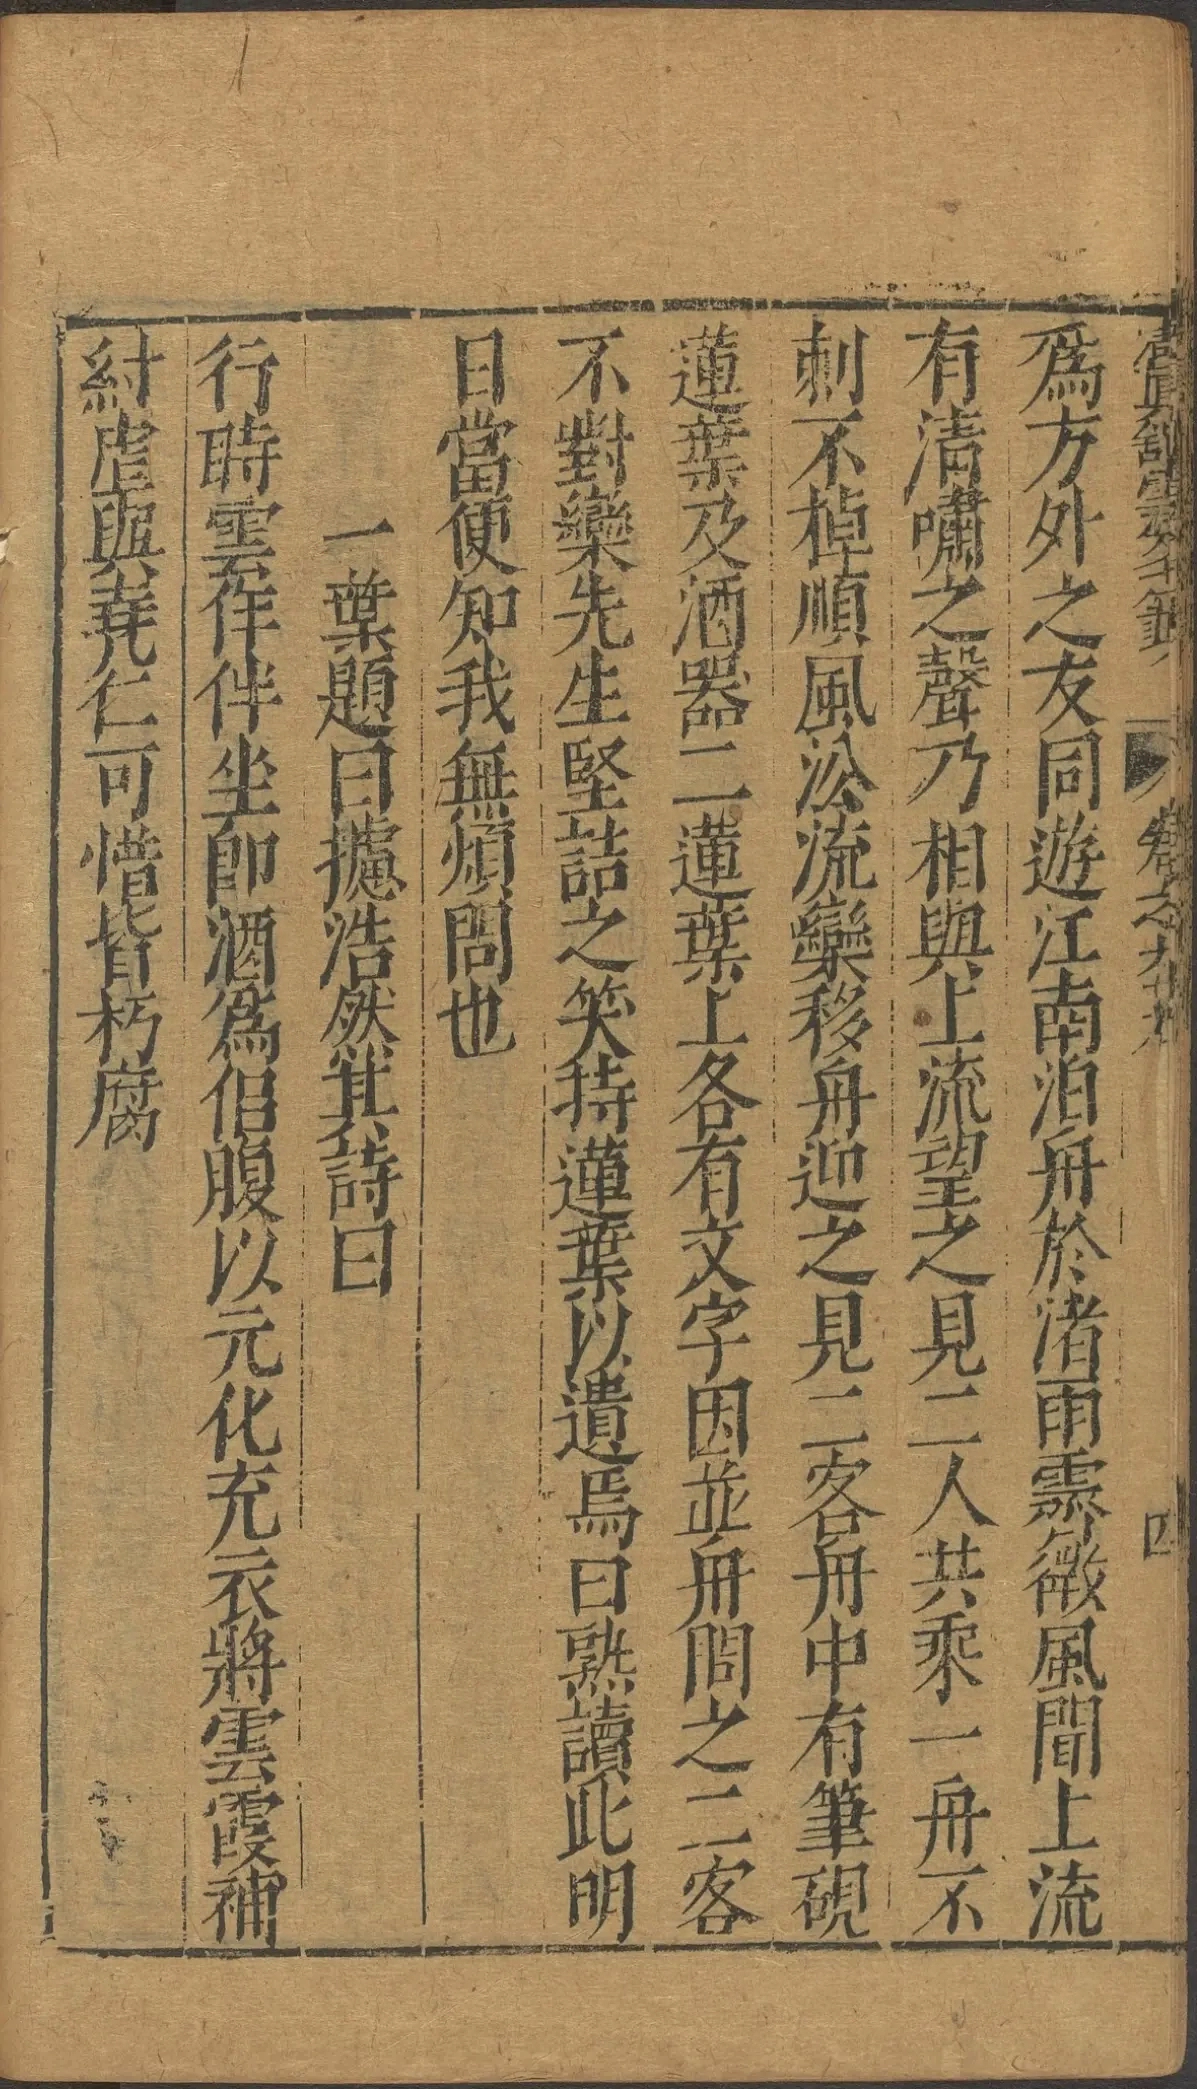 卷之九
四
爲方外之友同遊江南泊舟於渚雨霽微風聞上流
有清嘯之聲乃相與上流望之見二人共乘一舟不
刺不棹順風㳂流欒移舟迎之見二客舟中有筆硯
蓮葉及酒器二蓮葉上各有文字因並舟問之二客
不對欒先生堅詰之笑持蓮葉以遺焉曰熟讀此明
日當便知我無煩問也
一葉題曰攄浩然其詩曰
行時雲作伴坐卽酒爲侶腹以元化充衣將雲霞補
紂虐與堯仁可惜皆朽腐